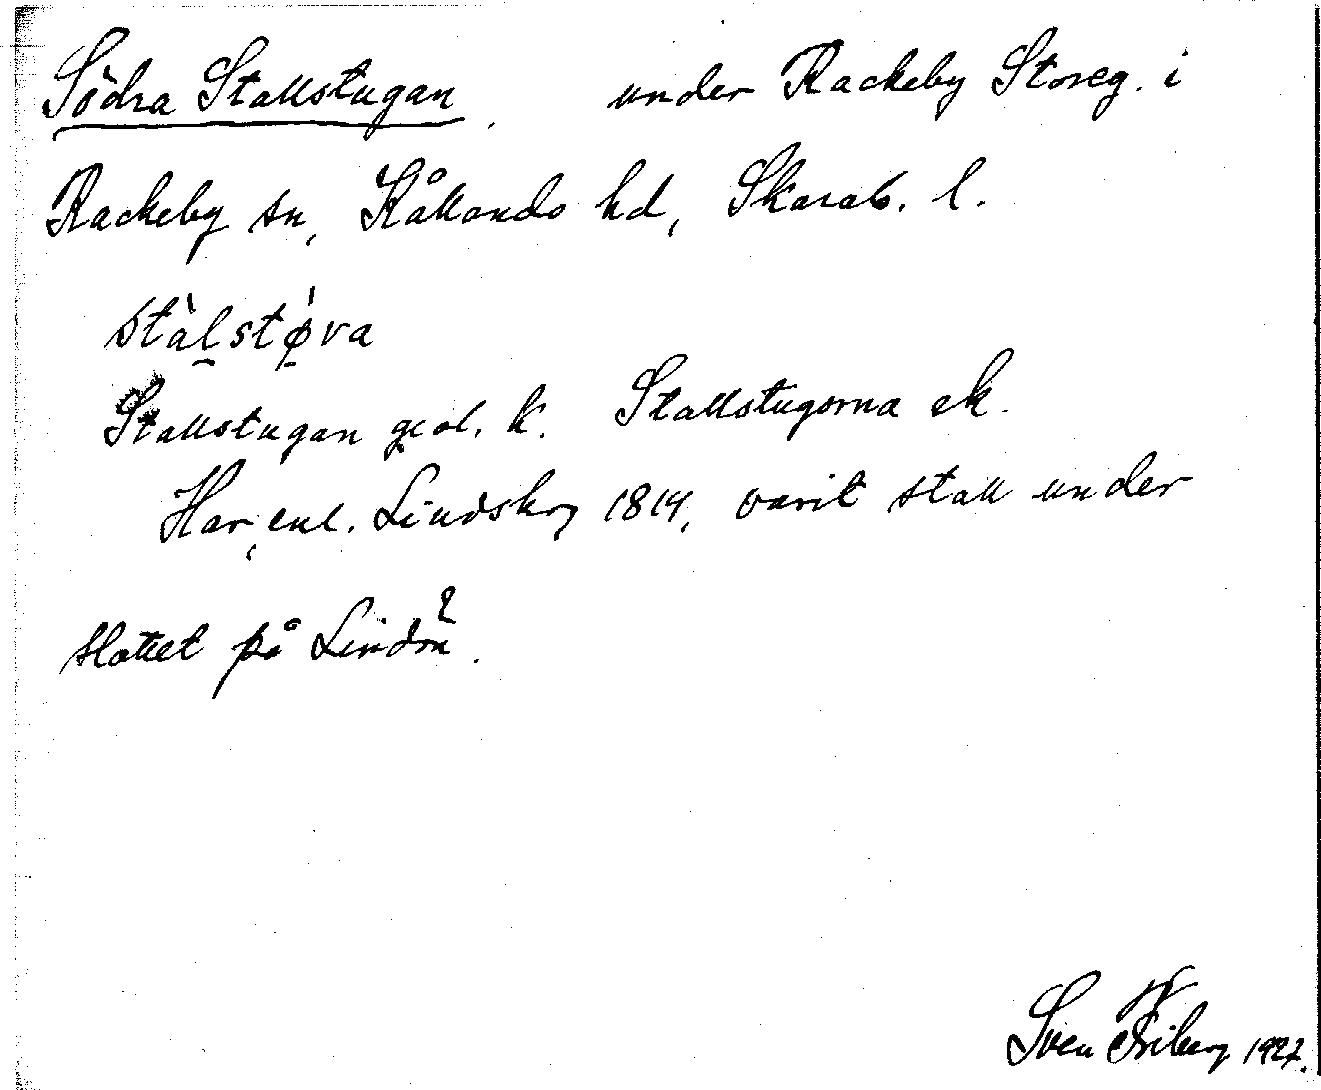 Södra Stallstugan. under Rackeby Storeg. i
Rackeby sn, Kållands hd, Skarab. l.
stàlstǿva
Stallstugan geol. k. Stallstugorna ek.
Har, enl. Lindskog 1814, varit stall under
slottet på Lindön?
Sven Friberg 1927.